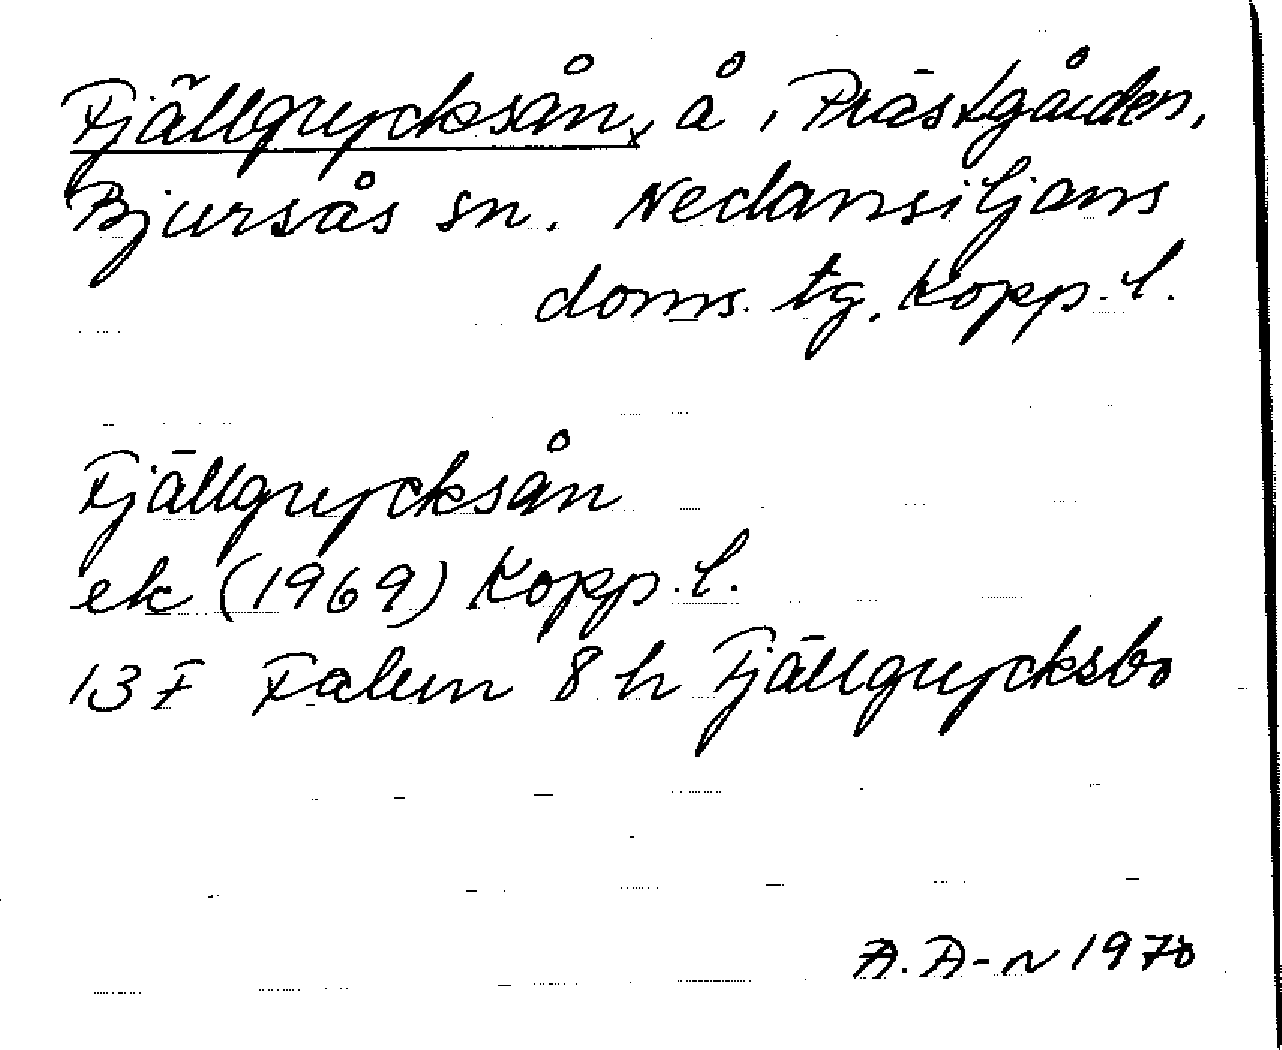 Fjällgrycksån, å i Prästgården,
Bjursås sn. Nedansiljans
doms. tg. Kopp. l.
Fjällgrycksån
ek (1969) Kopp. l.
13 F Falun 8 h Fjällgrycksbo
A. A-n 1970